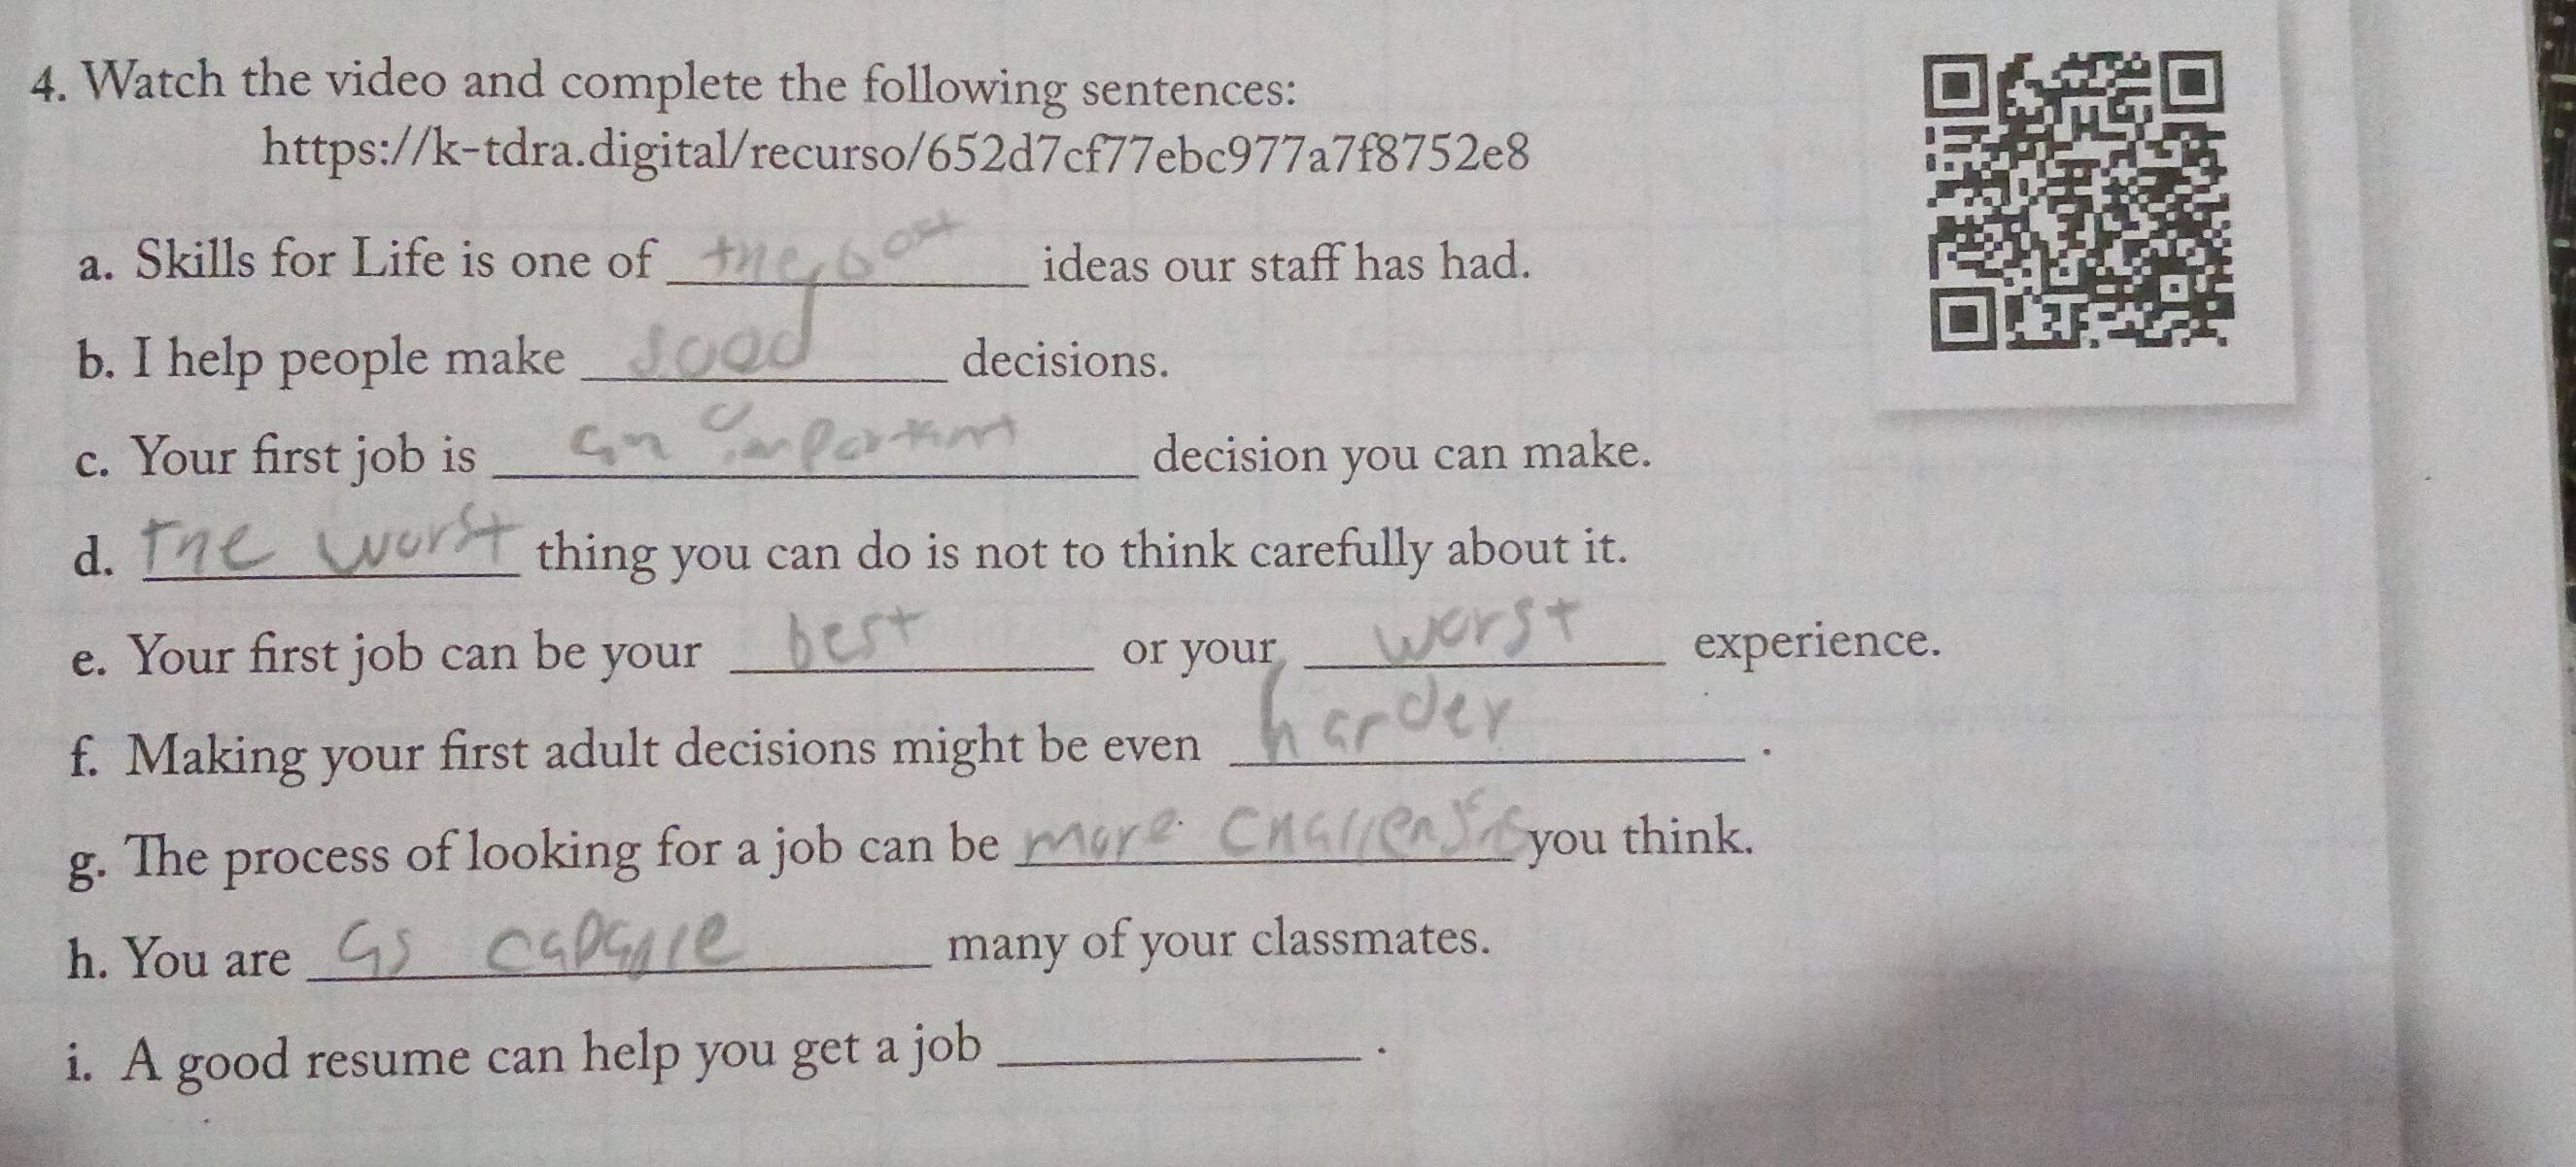 4. Watch the video and complete the following sentences:
https://k-tdra.digital/recurso/652d7cf77ebc977a7f8752e8
a. Skills for Life is one of the best ideas our staff has had.
b. I help people make good decisions.
c. Your first job is an important decision you can make.
d. The worst thing you can do is not to think carefully about it.
e. Your first job can be your best or your worst experience.
f. Making your first adult decisions might be even harder.
g. The process of looking for a job can be more you think.
h. You are as capable many of your classmates.
i. A good resume can help you get a job ____________.